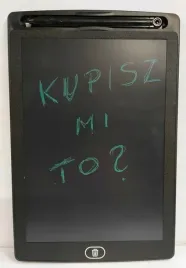 KUPISZ
MI
TO?